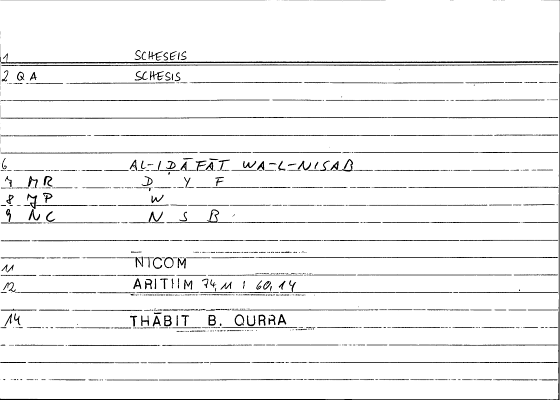 1 SCHESEIS
2 QA SCHESIS
6 AL-IḌĀFĀT WA-L-NISAB
7 MR Ḍ Y F
8 JP W
9 NC N S B
11 NICOM
12 ARITIIM 74,11 : 60,14
14 THĀBIT B. QURRA